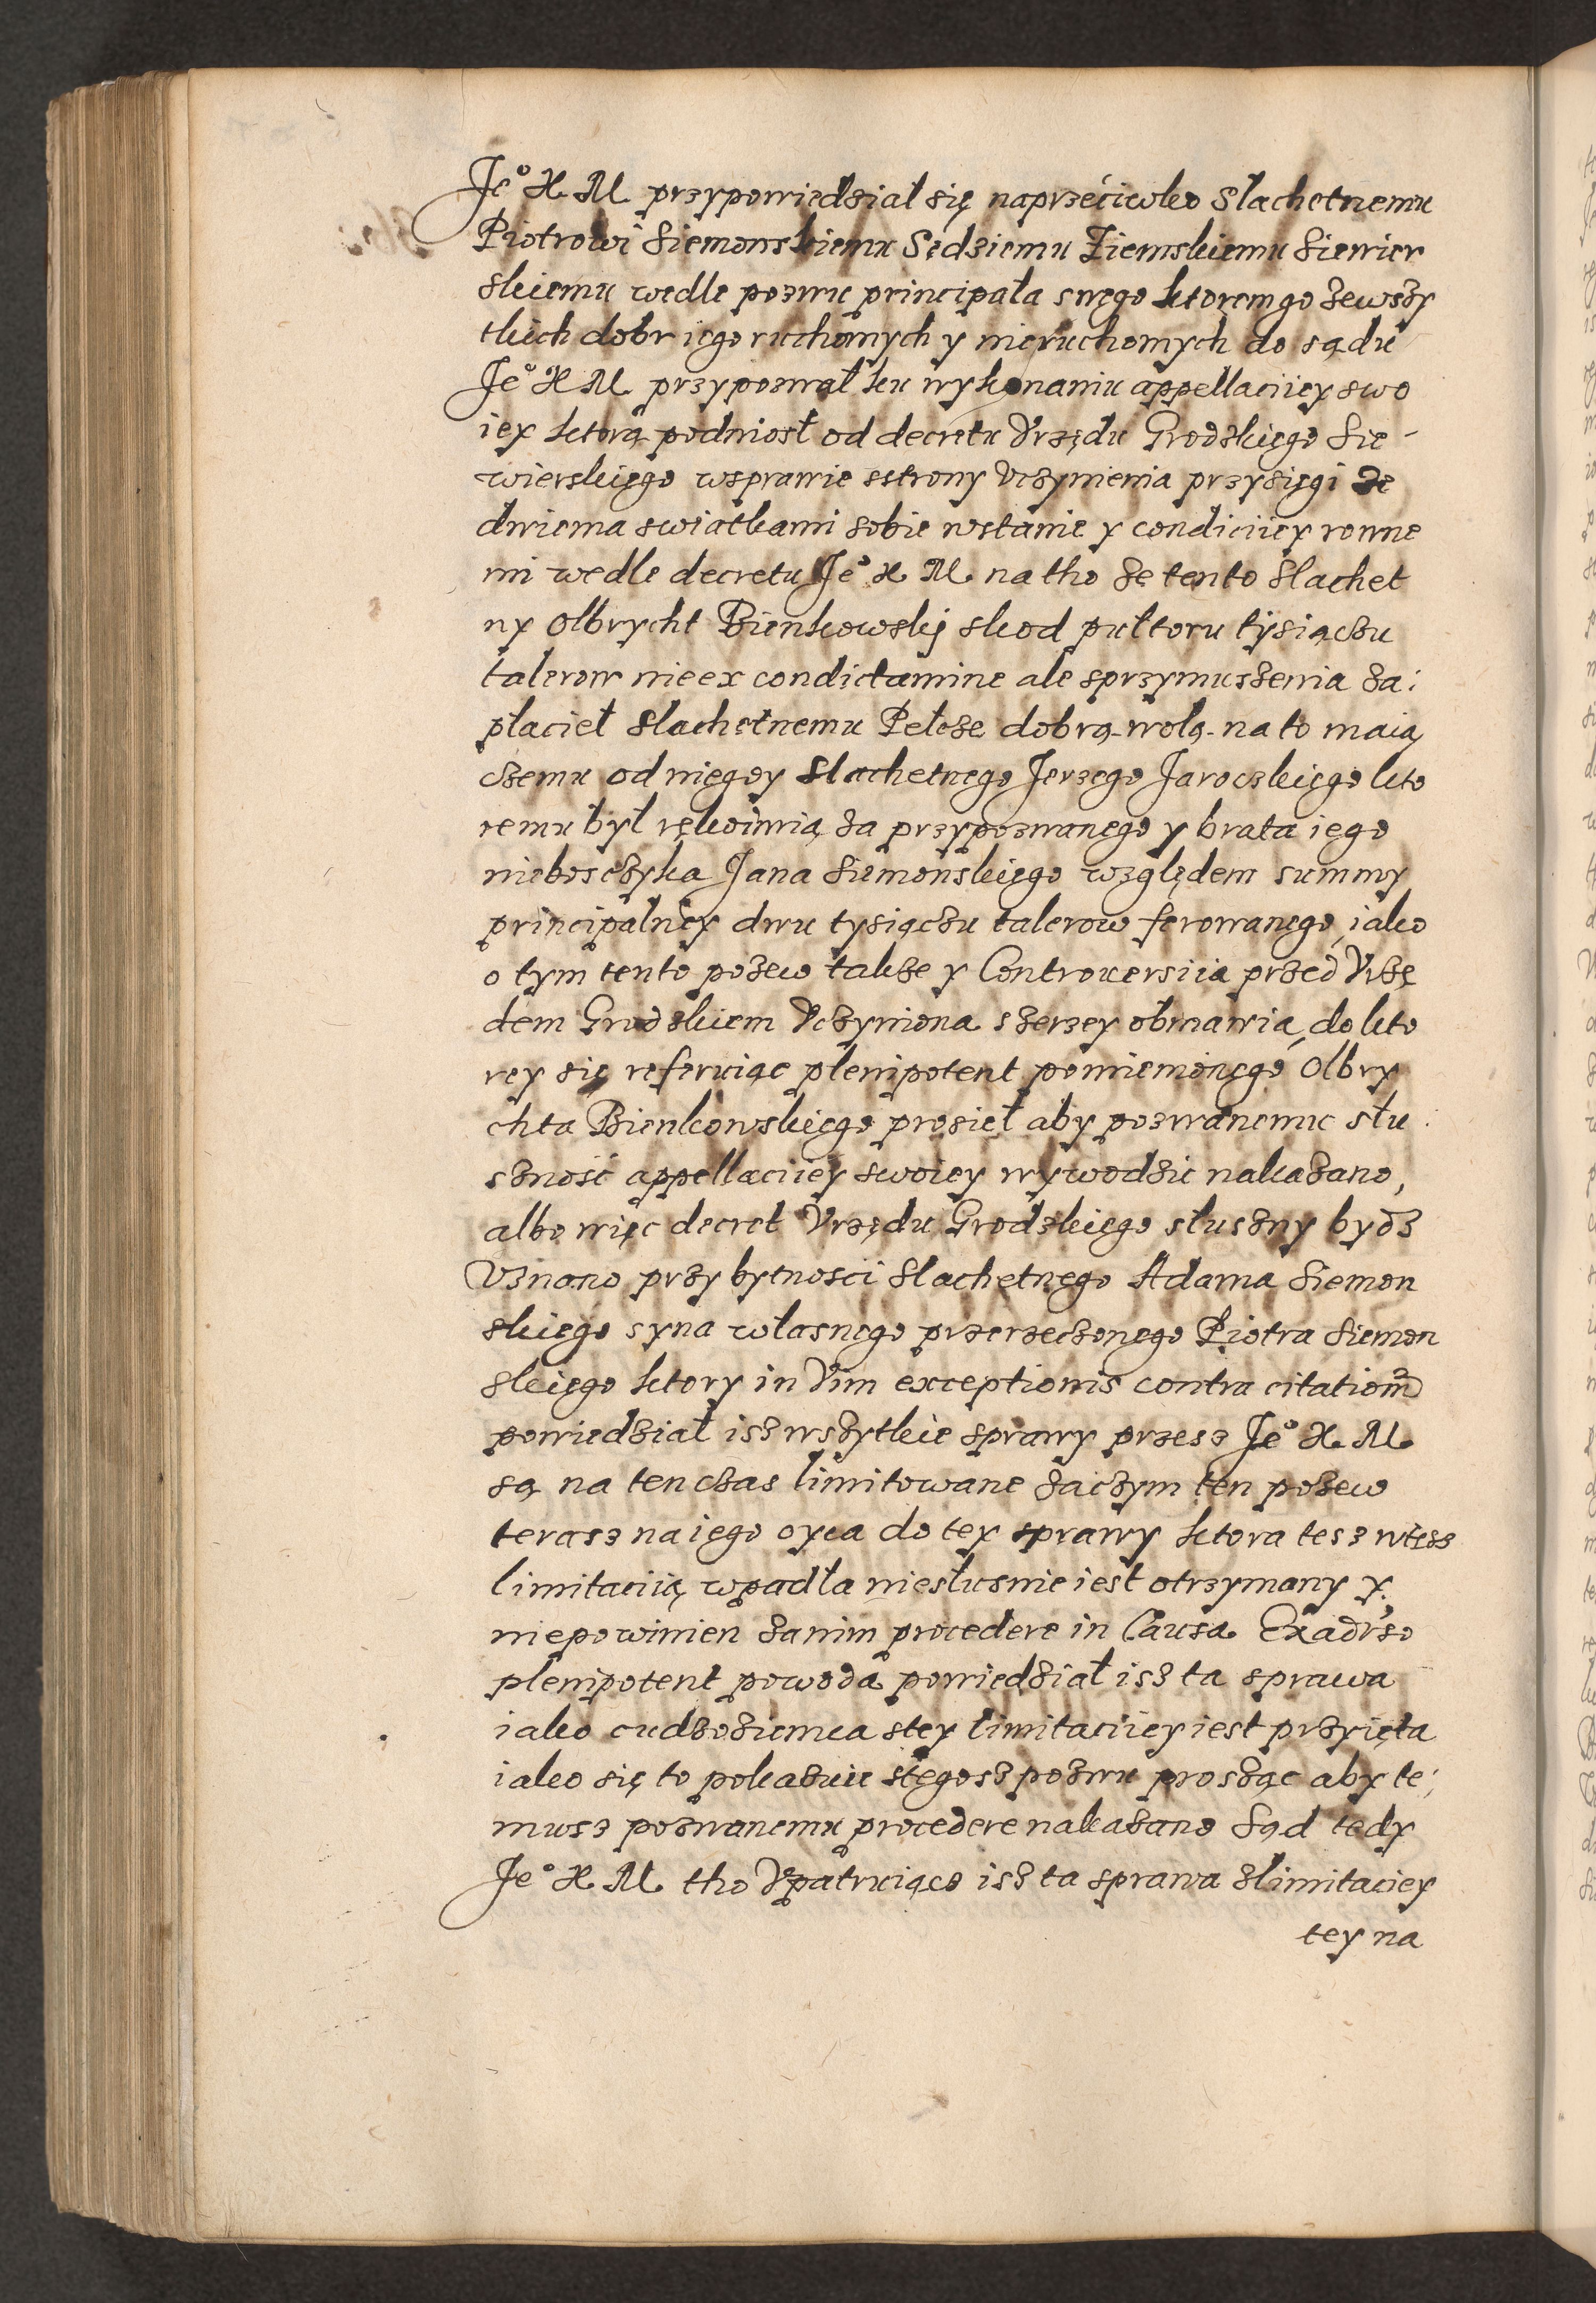 Je° X M przypowiedział się naprzeciwko Slachetnemu
Piotrowi Siemonskiemu Sędziemu Ziemskiemu Siewier
skiemu wedle pozwu principała swego ktorem go zewszy
tkich dobr iego ruchomych y nieruchomych do sądu
Je° X M przypozwał ku wykonaniu appellaciiey swo
iey ktorą podniosł od decretu Vrzędu Grodskiego Sie-
wierskiego wsprawie sstrony Vczynienia przysięgi ze
dwiema swiatkami sobie wstanie y condiciiey rowne
mi wedle decretu Je° X M na tho że tento Slachet
ny Olbrycht Bienkowskj skod pułtoru tysiączu
talerow nie ex condictamine ale sprzymuszenia za:
płacieł Slachetnemu Pełcze dobrą wolą na to maią
czemu od niegdy Slachetnego Jerzego Jaroczkiego kto
remu był rękoimią za przypozwanego y brata iego
nieboszczyka Jana Siemonskiego względem summy
principalney dwu tysiączu talerow ferowanego, iako
o tym tento pozew także y Controuersiia przed Vrzę
dem Grodskiem Vczyniona szerzey obmawia, do kto
rey się referuiąc plenipotent pomienionego Olbry
chta Bienkowskiego prosieł aby pozwanemu słu
szność appellaciiey swoiey wywodzić nakazano,
albo więc decret Vrzędu Grodzkiego słuszny bydz
Vznano przy bytnosci Slachetnego Adama Siemon
skiego syna własnego przerzeczonego Piotra Siemon
skiego ktory in Vim exceptionis contra citationẽ
powiedział isz wszytkie sprawy przesz Je° X M
są na ten czas limitowane zaczym ten pozew
terasz na iego oyca do tey sprawy ktora tesz wtęsz
limitaciią wpadła niesłusnie iest otrzymany y
niepowinien zanim procedere in Causa. Ex adũso
plenipotent powoda powiedział isz ta sprawa
iako cudzoziemca stey limitaciiey iest przyięta
iako się to pokazuie stegosz pozwu prosząc aby te:
musz pozwanemu procedere nakazano Sąd tedy
Je° X M tho Vpatruiąco isz ta sprawa zlimitaciey
tey na